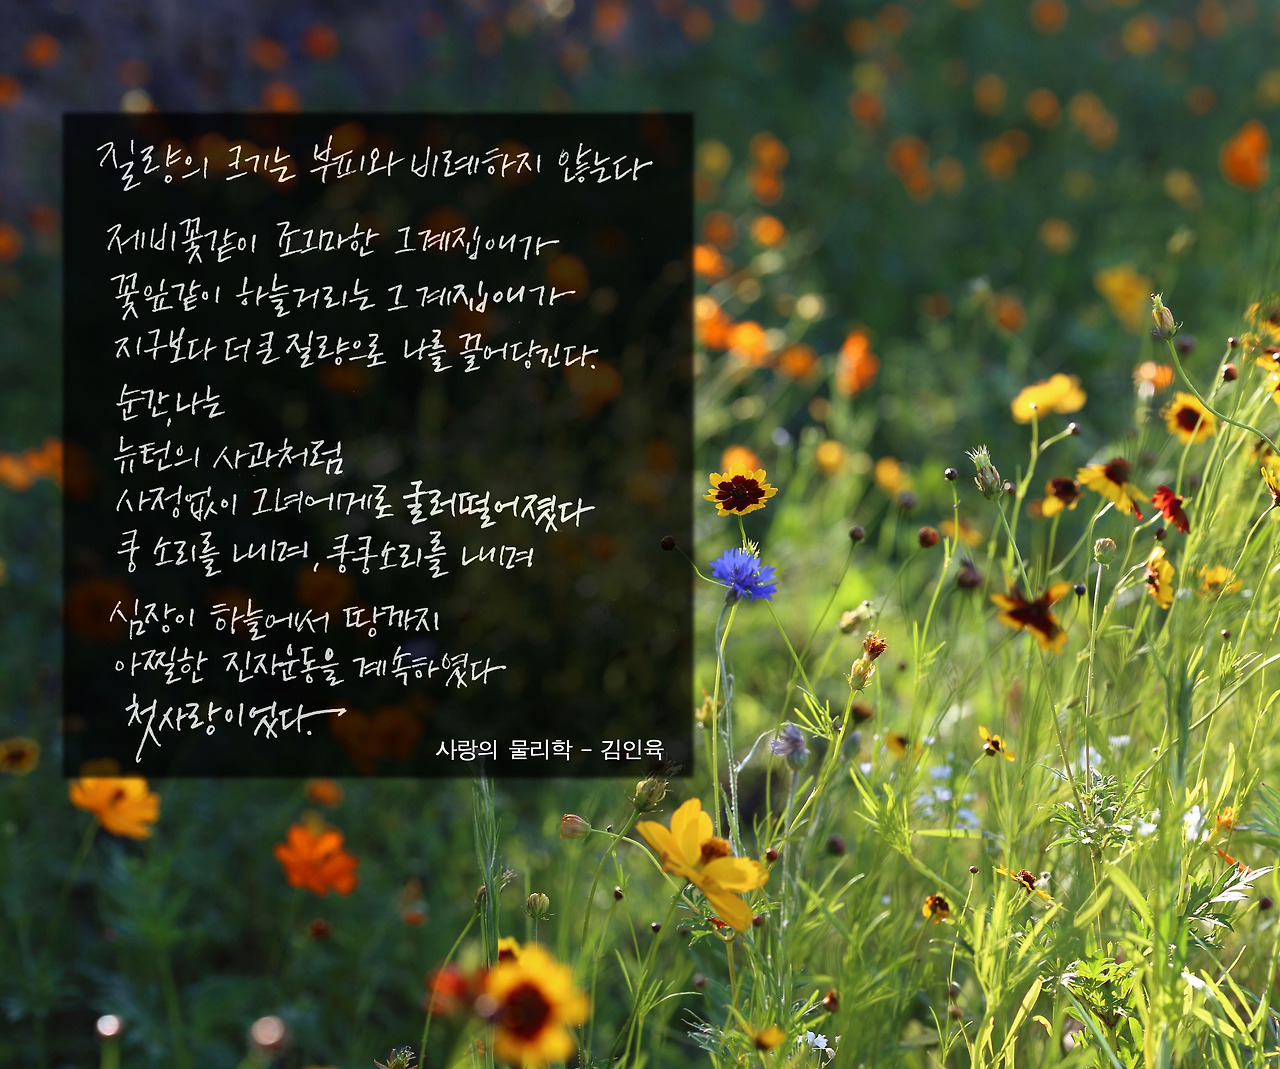 질량의 크기는 부피와 비례하지 않는다
제비꽃같이 조그마한 그 계집애가
꽃잎같이 하늘거리는 그 계집애가
지구보다 더 큰 질량으로 나를 끌어당긴다.
순간, 나는
뉴턴의 사과처럼
사정없이 그녀에게로 굴러떨어졌다
쿵 소리를 내며, 쿵쿵 소리를 내며
심장이 하늘에서 땅까지
아찔한 진자운동을 계속하였다
첫사랑이었다.
사랑의 물리학 - 김인육